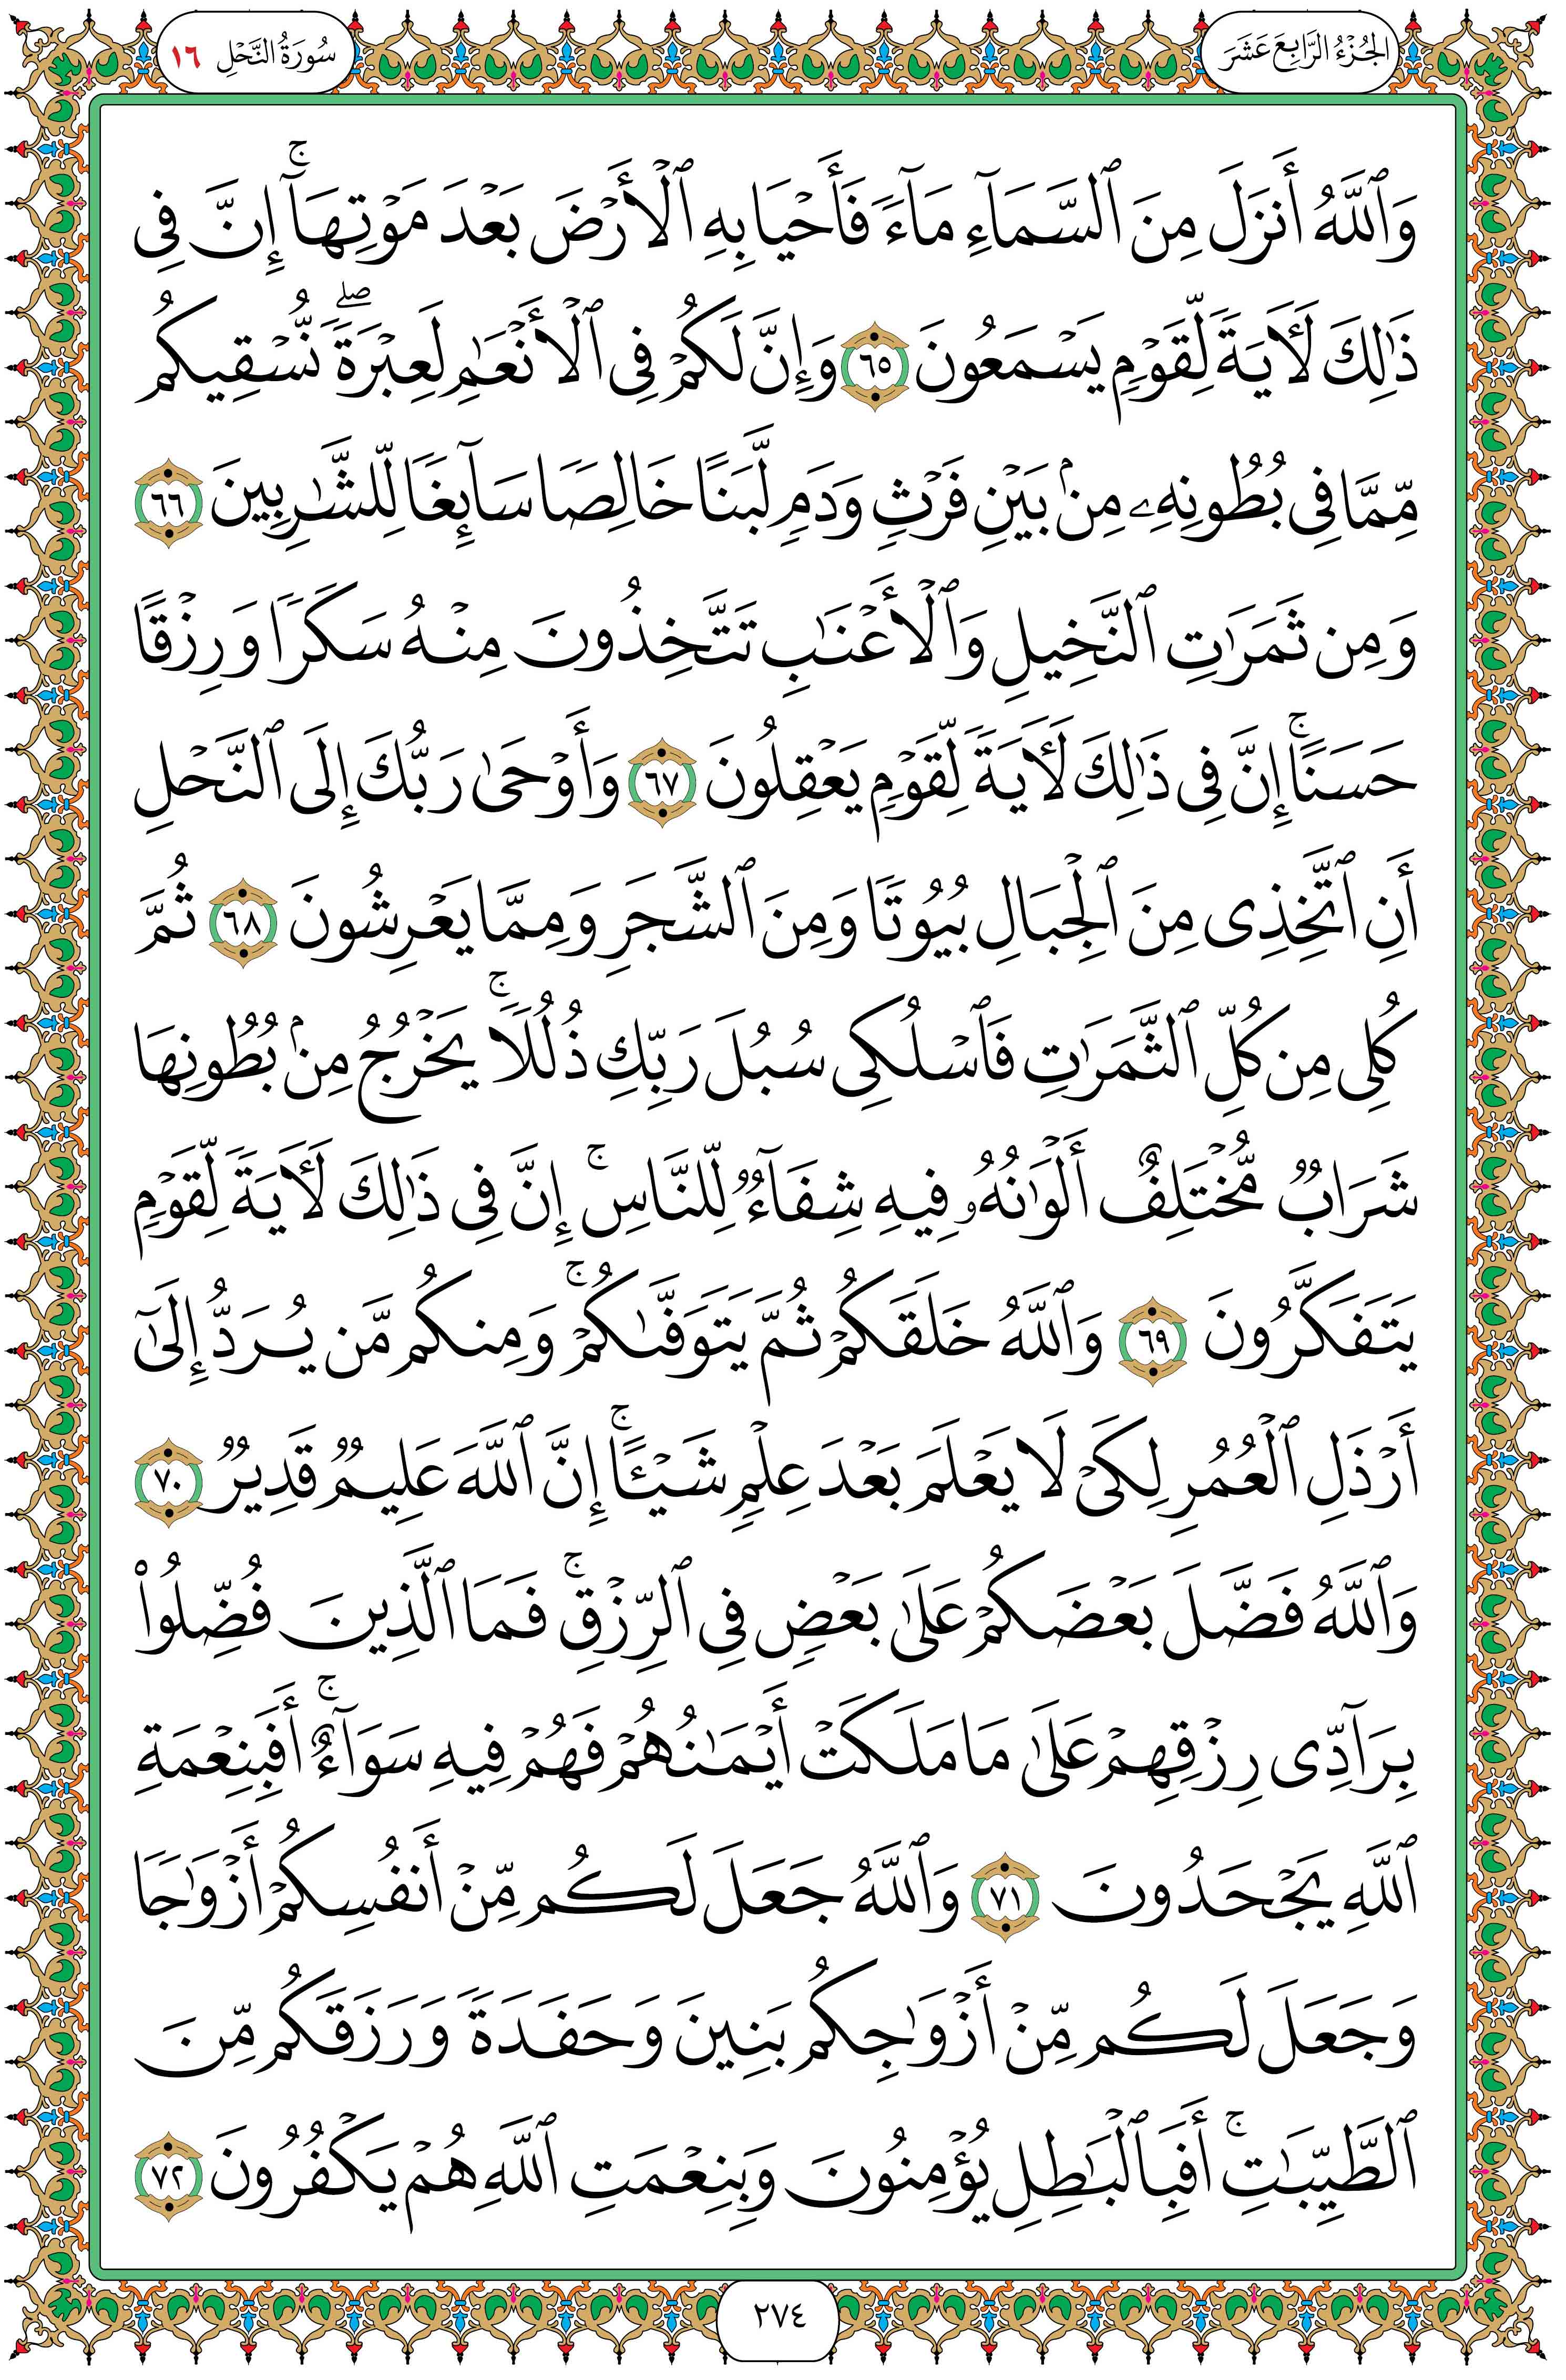 الجُزْءُ الرَّابِعَ عَشَرَ
سُورَةُ النَّحْلِ ١٦
وَٱللَّهُ أَنزَلَ مِنَ ٱلسَّمَآءِ مَآءً فَأَحْيَا بِهِ ٱلْأَرْضَ بَعْدَ مَوْتِهَآ ۚ إِنَّ فِى
ذَٰلِكَ لَـَٔايَةً لِّقَوْمٍ يَسْمَعُونَ ٦٥ وَإِنَّ لَكُمْ فِى ٱلْأَنْعَـٰمِ لَعِبْرَةً ۖ نُّسْقِيكُم
مِّمَّا فِى بُطُونِهِۦ مِنۢ بَيْنِ فَرْثٍ وَدَمٍ لَّبَنًا خَالِصًا سَآئِغًا لِّلشَّـٰرِبِينَ ٦٦
وَمِن ثَمَرَٰتِ ٱلنَّخِيلِ وَٱلْأَعْنَـٰبِ تَتَّخِذُونَ مِنْهُ سَكَرًا وَرِزْقًا
حَسَنًا ۗ إِنَّ فِى ذَٰلِكَ لَـَٔايَةً لِّقَوْمٍ يَعْقِلُونَ ٦٧ وَأَوْحَىٰ رَبُّكَ إِلَى ٱلنَّحْلِ
أَنِ ٱتَّخِذِى مِنَ ٱلْجِبَالِ بُيُوتًا وَمِنَ ٱلشَّجَرِ وَمِمَّا يَعْرِشُونَ ٦٨ ثُمَّ
كُلِى مِن كُلِّ ٱلثَّمَرَٰتِ فَٱسْلُكِى سُبُلَ رَبِّكِ ذُلُلًا ۚ يَخْرُجُ مِنۢ بُطُونِهَا
شَرَابٌ مُّخْتَلِفٌ أَلْوَٰنُهُۥ فِيهِ شِفَآءٌ لِّلنَّاسِ ۚ إِنَّ فِى ذَٰلِكَ لَـَٔايَةً لِّقَوْمٍ
يَتَفَكَّرُونَ ٦٩ وَٱللَّهُ خَلَقَكُمْ ثُمَّ يَتَوَفَّىٰكُمْ ۚ وَمِنكُم مَّن يُرَدُّ إِلَىٰٓ
أَرْذَلِ ٱلْعُمُرِ لِكَىْ لَا يَعْلَمَ بَعْدَ عِلْمٍ شَيْـًٔا ۚ إِنَّ ٱللَّهَ عَلِيمٌ قَدِيرٌ ٧٠
وَٱللَّهُ فَضَّلَ بَعْضَكُمْ عَلَىٰ بَعْضٍ فِى ٱلرِّزْقِ ۚ فَمَا ٱلَّذِينَ فُضِّلُوا۟
بِرَآدِّى رِزْقِهِمْ عَلَىٰ مَا مَلَكَتْ أَيْمَـٰنُهُمْ فَهُمْ فِيهِ سَوَآءٌ ۚ أَفَبِنِعْمَةِ
ٱللَّهِ يَجْحَدُونَ ٧١ وَٱللَّهُ جَعَلَ لَكُم مِّنْ أَنفُسِكُمْ أَزْوَٰجًا
وَجَعَلَ لَكُم مِّنْ أَزْوَٰجِكُم بَنِينَ وَحَفَدَةً وَرَزَقَكُم مِّنَ
ٱلطَّيِّبَـٰتِ ۚ أَفَبِٱلْبَـٰطِلِ يُؤْمِنُونَ وَبِنِعْمَتِ ٱللَّهِ هُمْ يَكْفُرُونَ ٧٢
٢٧٤